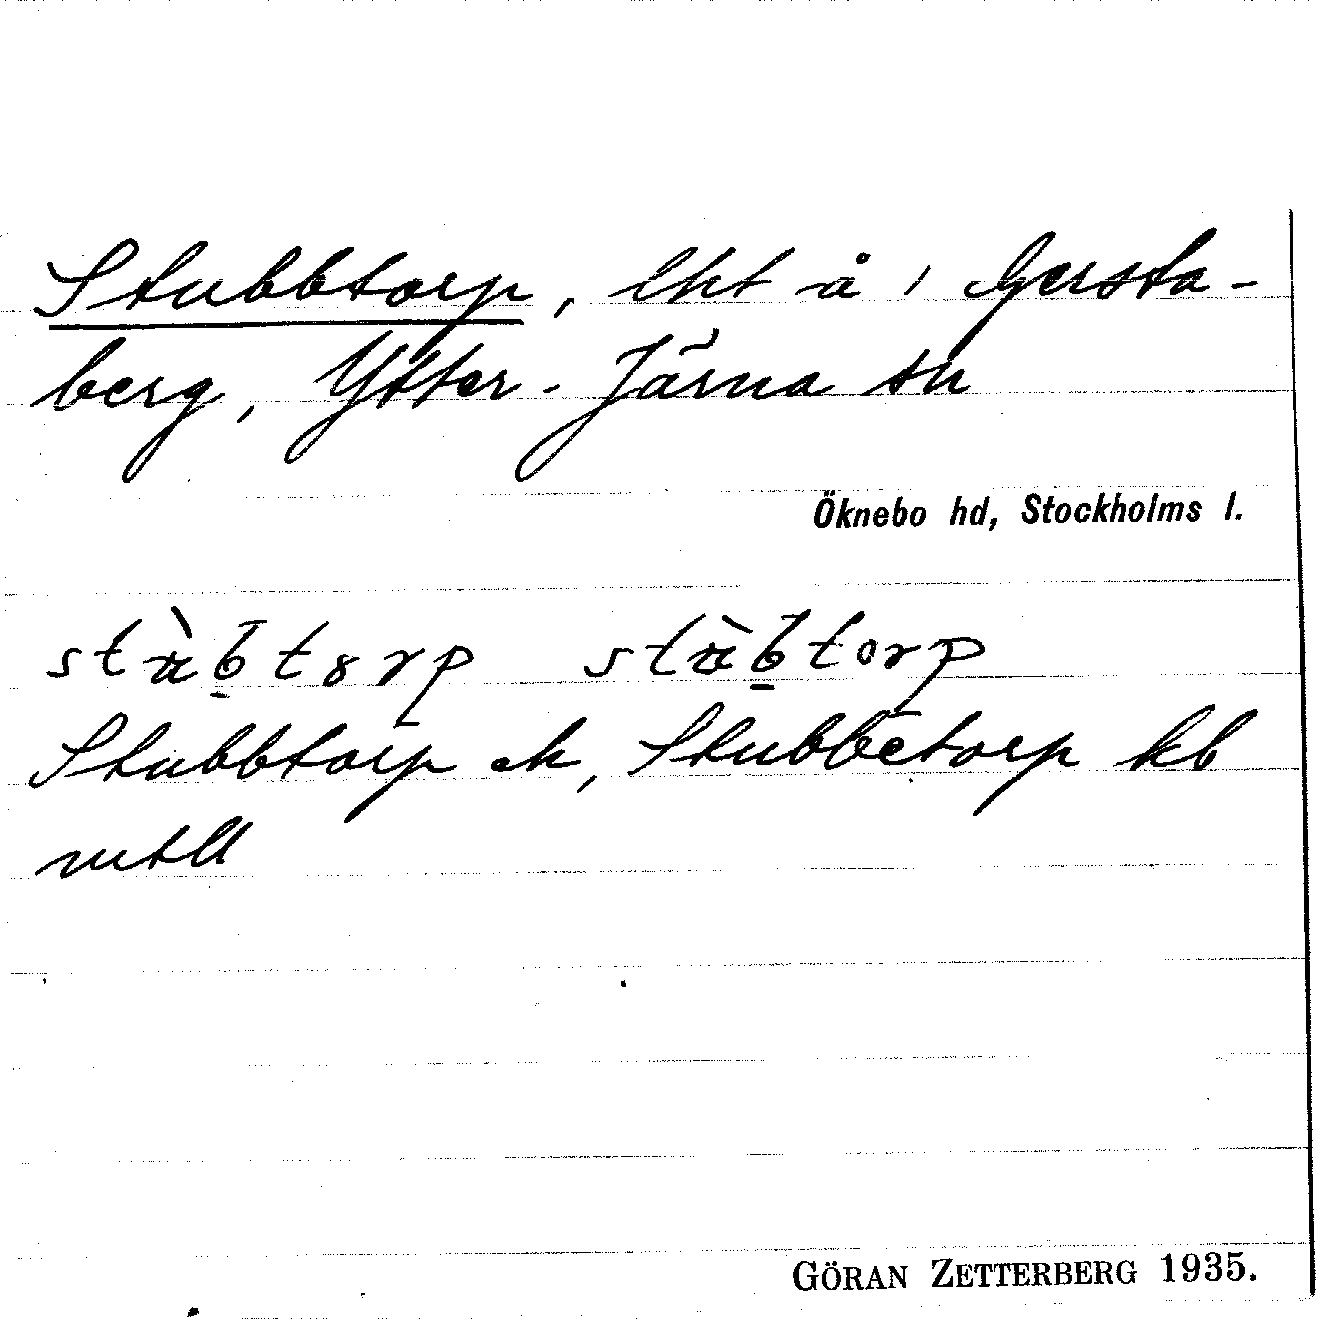 Stubbtorp, lht å 1 Gersta-
berg, Ytter-Järna sn
Öknebo hd, Stockholms l.
stùbtorp stùbtorp
Stubbtorp ek, Stubbetorp kb
mtll
GÖRAN ZETTERBERG 1935.